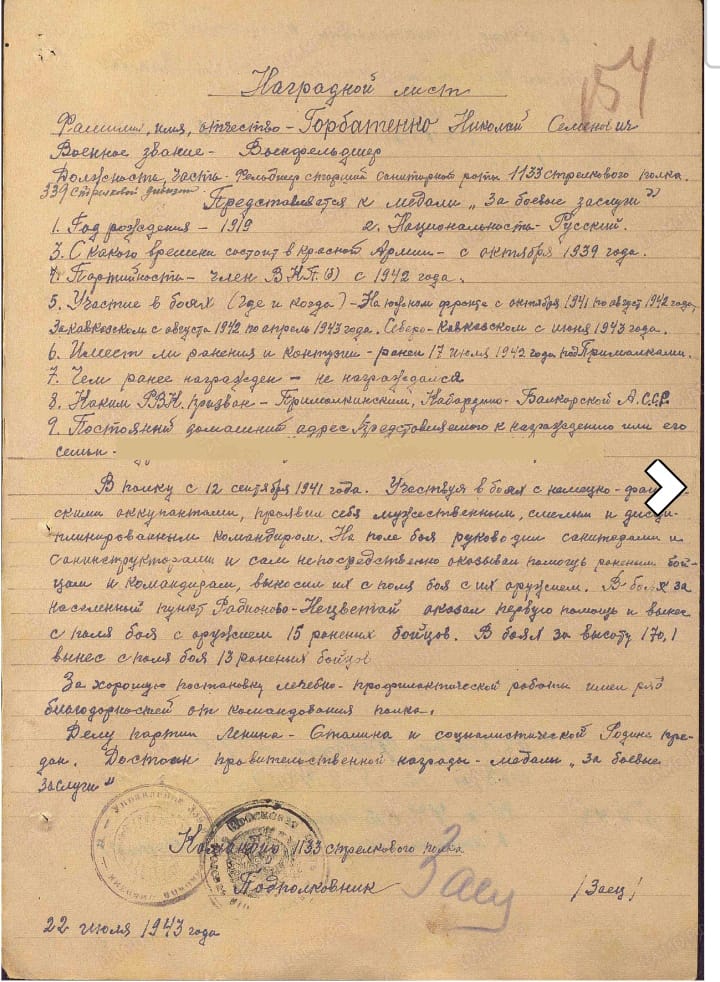 Наградной лист
154
Фамилия, имя, отчество - Горбатенко Николай Семенович
Военное звание - Военфельдшер
Должность, часть - Фельдшер старший санитарной роты 1133 стрелкового полка.
339 стрелковой дивизии.
Представляется к медали „За боевые заслуги"
1. Год рождения - 1919 2. Национальность - Русский.
3. С какого времени состоит в Красной Армии - с октября 1939 года.
4. Партийность - член ВКП(б) с 1942 года.
5. Участие в боях (где и когда) - На южном фронте с октября 1941 по август 1942 года,
Закавказском с августа 1942 по апрель 1943 года. Северо-Кавказском с июня 1943 года.
6. Имеет ли ранения и контузии - ранен 17 июля 1942 года под Прималками.
7. Чем ранее награжден - не награждался
8. Каким РВК призван - Прималкинский, Кабардино-Балкарской А.С.С.Р.
9. Постояный домашний адрес представляемого к награждению или его
семьи -
В полку с 12 сентября 1941 года. Участвуя в боях с немецко-фаши-
скими оккупантами, проявил себя мужественным, смелым и дисци-
плинированным командиром. На поле боя руководил санитарами и
санинструкторами и сам непосредственно оказывал помощь раненим бой-
цам и командирам, выносил их с поля боя с их оружием. В боях за
населенный пункт Радионово-Несветай оказал первую помощь и вынес
с поля боя с оружием 15 раненых бойцов. В боях за высоту 170,1
вынес с поля боя 13 раненых бойцов
За хорошую постановку лечебно-профилактической работы имел ряд
благодарностей от командования полка.
Делу партии Ленина-Сталина и социалистической Родине пре-
дан. Достоин правительственной награды - медали „За боевые
заслуги"
Командир 1133 стрелкового полка
Подполковник Заец /Заец/
22 июля 1943 года